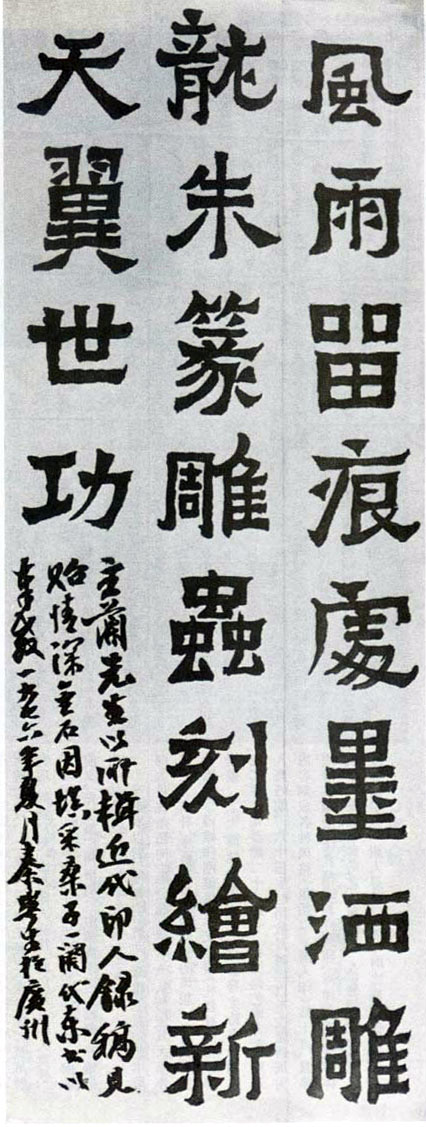 風雨留痕處墨洒雕
龍朱篆雕蟲刻繪新
天翼世功
主蘭先生以所輯近代印人錄稿見
貽情深金石因填采桑子一闋代柬書以
奉教一九七六年夏月秦咢生於廣州